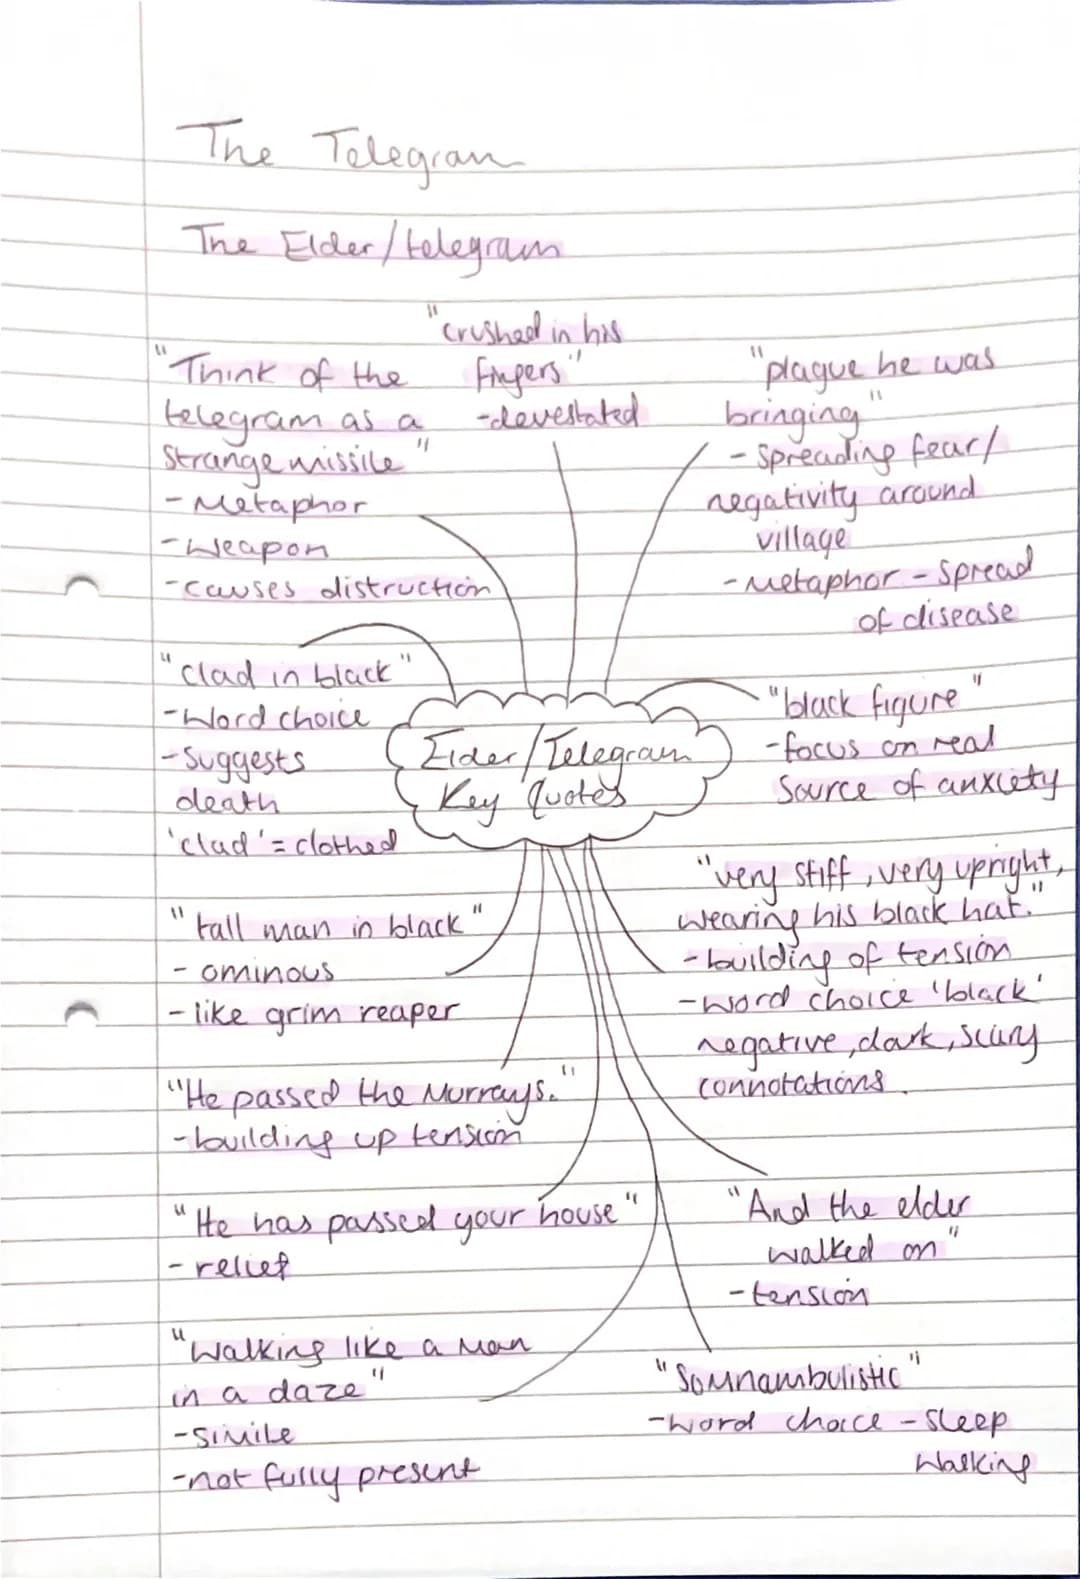 The Telegram
The Elder/telegram
"crushed in his
fingers"
-devestated
"Think of the
telegram as a
strange missile"
-Metaphor
-Weapon
-causes distruction
"plague he was
bringing"
- spreading fear/
negativity around
village
-Metaphor - spread
of disease
"clad in black"
-Word choice
-Suggests
death
'clad' = clothed
Elder/Telegram
Key Quotes
"black figure"
-focus on real
source of anxiety
"tall man in black"
- ominous
- like grim reaper
"very stiff, very upright,
wearing his black hat."
-building of tension
-word choice 'black'
negative, dark, scary
connotations.
"He passed the Murrays."
-building up tension
"He has passed your house"
- relief
"And the elder
walked on"
-tension
"Walking like a man
in a daze"
-simile
-not fully present
"Somnambulistic"
-word choice - sleep
walking